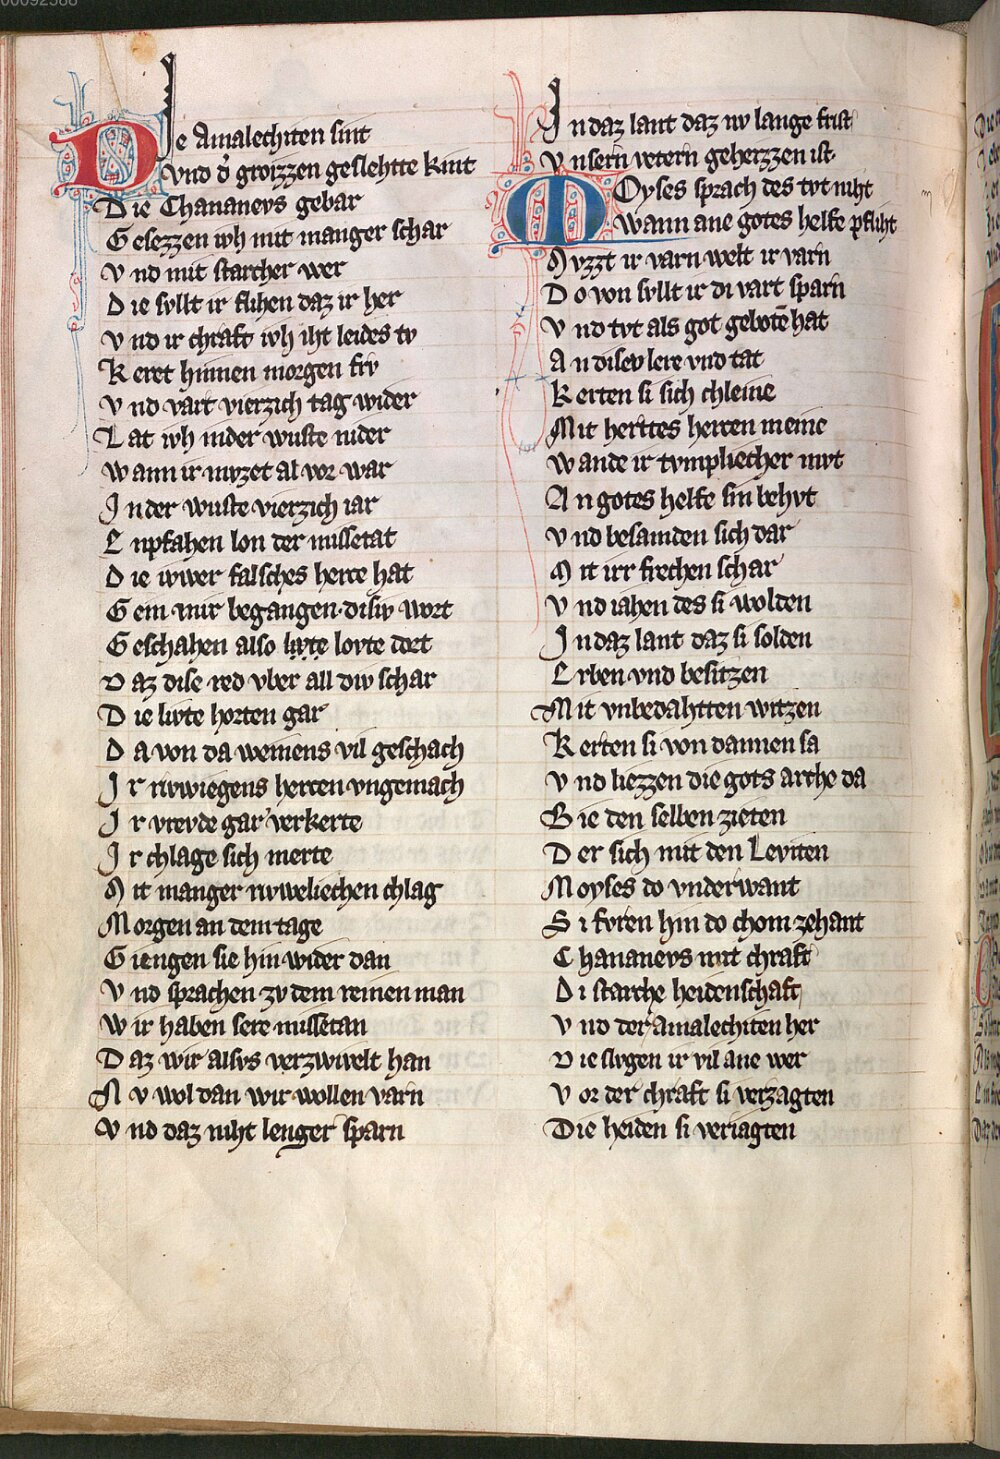 00092588
DIe Amalechiten sint
Vnd d̾ groizzen geslehtte kint
Die Chananeys gebar
Gesezzen iwh mit manger schar
Vnd mit starcher wer
Die svllt ir flihen daz ir her
Vnd ir chraft iwh iht leides tv
Keret hinnen morgen frv
Vnd vart vierzich tag wider
Lat iwh inder wuste nider
Wann ir mvzet al vor war
In der wuste vierzich iar
Enpfahen lon der missetat
Die iwwer falsches hertze hat
Gein mir begangen disiv wort
Geschahen also livte lovte dort
Daz dise red vber all div schar
Die livte horten gar
Da von da weinens vil geschach
Ir nvwiegens hertzen vngemach
Ir vrevde gar verkerte
Ir chlage sich merte
Mit manger nvweliechen chlag
Morgen an dem tage
Giengen sie hin wider dan
Vnd sprachen zv dem reinen man
Wir haben sere missetan
Daz wir alsvs verzwivelt han
Nv wol dan wir wollen varn
Vnd daz niht lenger sparn
In daz lant daz nv lange frist
Vnsern vetern geheizzen ist
Moyses sprach des tvt niht
Wann ane gotes helfe pfliht
Mvzzt ir varn welt ir varn
Do von svllt ir di vart sparn
Vnd tvt als got gebote hat
An disev lere vnd tat
Kerten si sich chleine
Mit herttes hertzen meine
Wande ir tvmpliecher mvt
An gotes helfe sin behvt
Vnd besamden sich dar
Mit irr frechen schar
Vnd iahen des si wolden
In daz lant daz si solden
Erben vnd besitzen
Mit vnbedahtten witzen
Kerten si von dannen sa
Vnd liezzen die gots arche da
Bie den selben zieten
Der sich mit den Leviten
Moyses do vnderwant
Si fvren hin do chom zehant
Chananeys mit chraft
Di starche heidenschaft
Vnd der Amalechiten her
Die slvgen ir vil ane wer
Vor der chraft si verzagten
Die heiden si veriagten